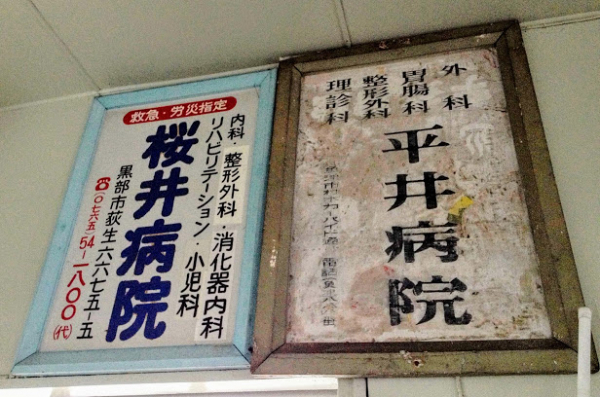 救急・労災指定
内科・整形外科・消化器内科
リハビリテーション・小児科
桜井病院
黒部市荻生六六七五ー五
☎(〇七六五)54-一八〇〇(代)
外科
胃腸科
整形外科
理診科
平井病院